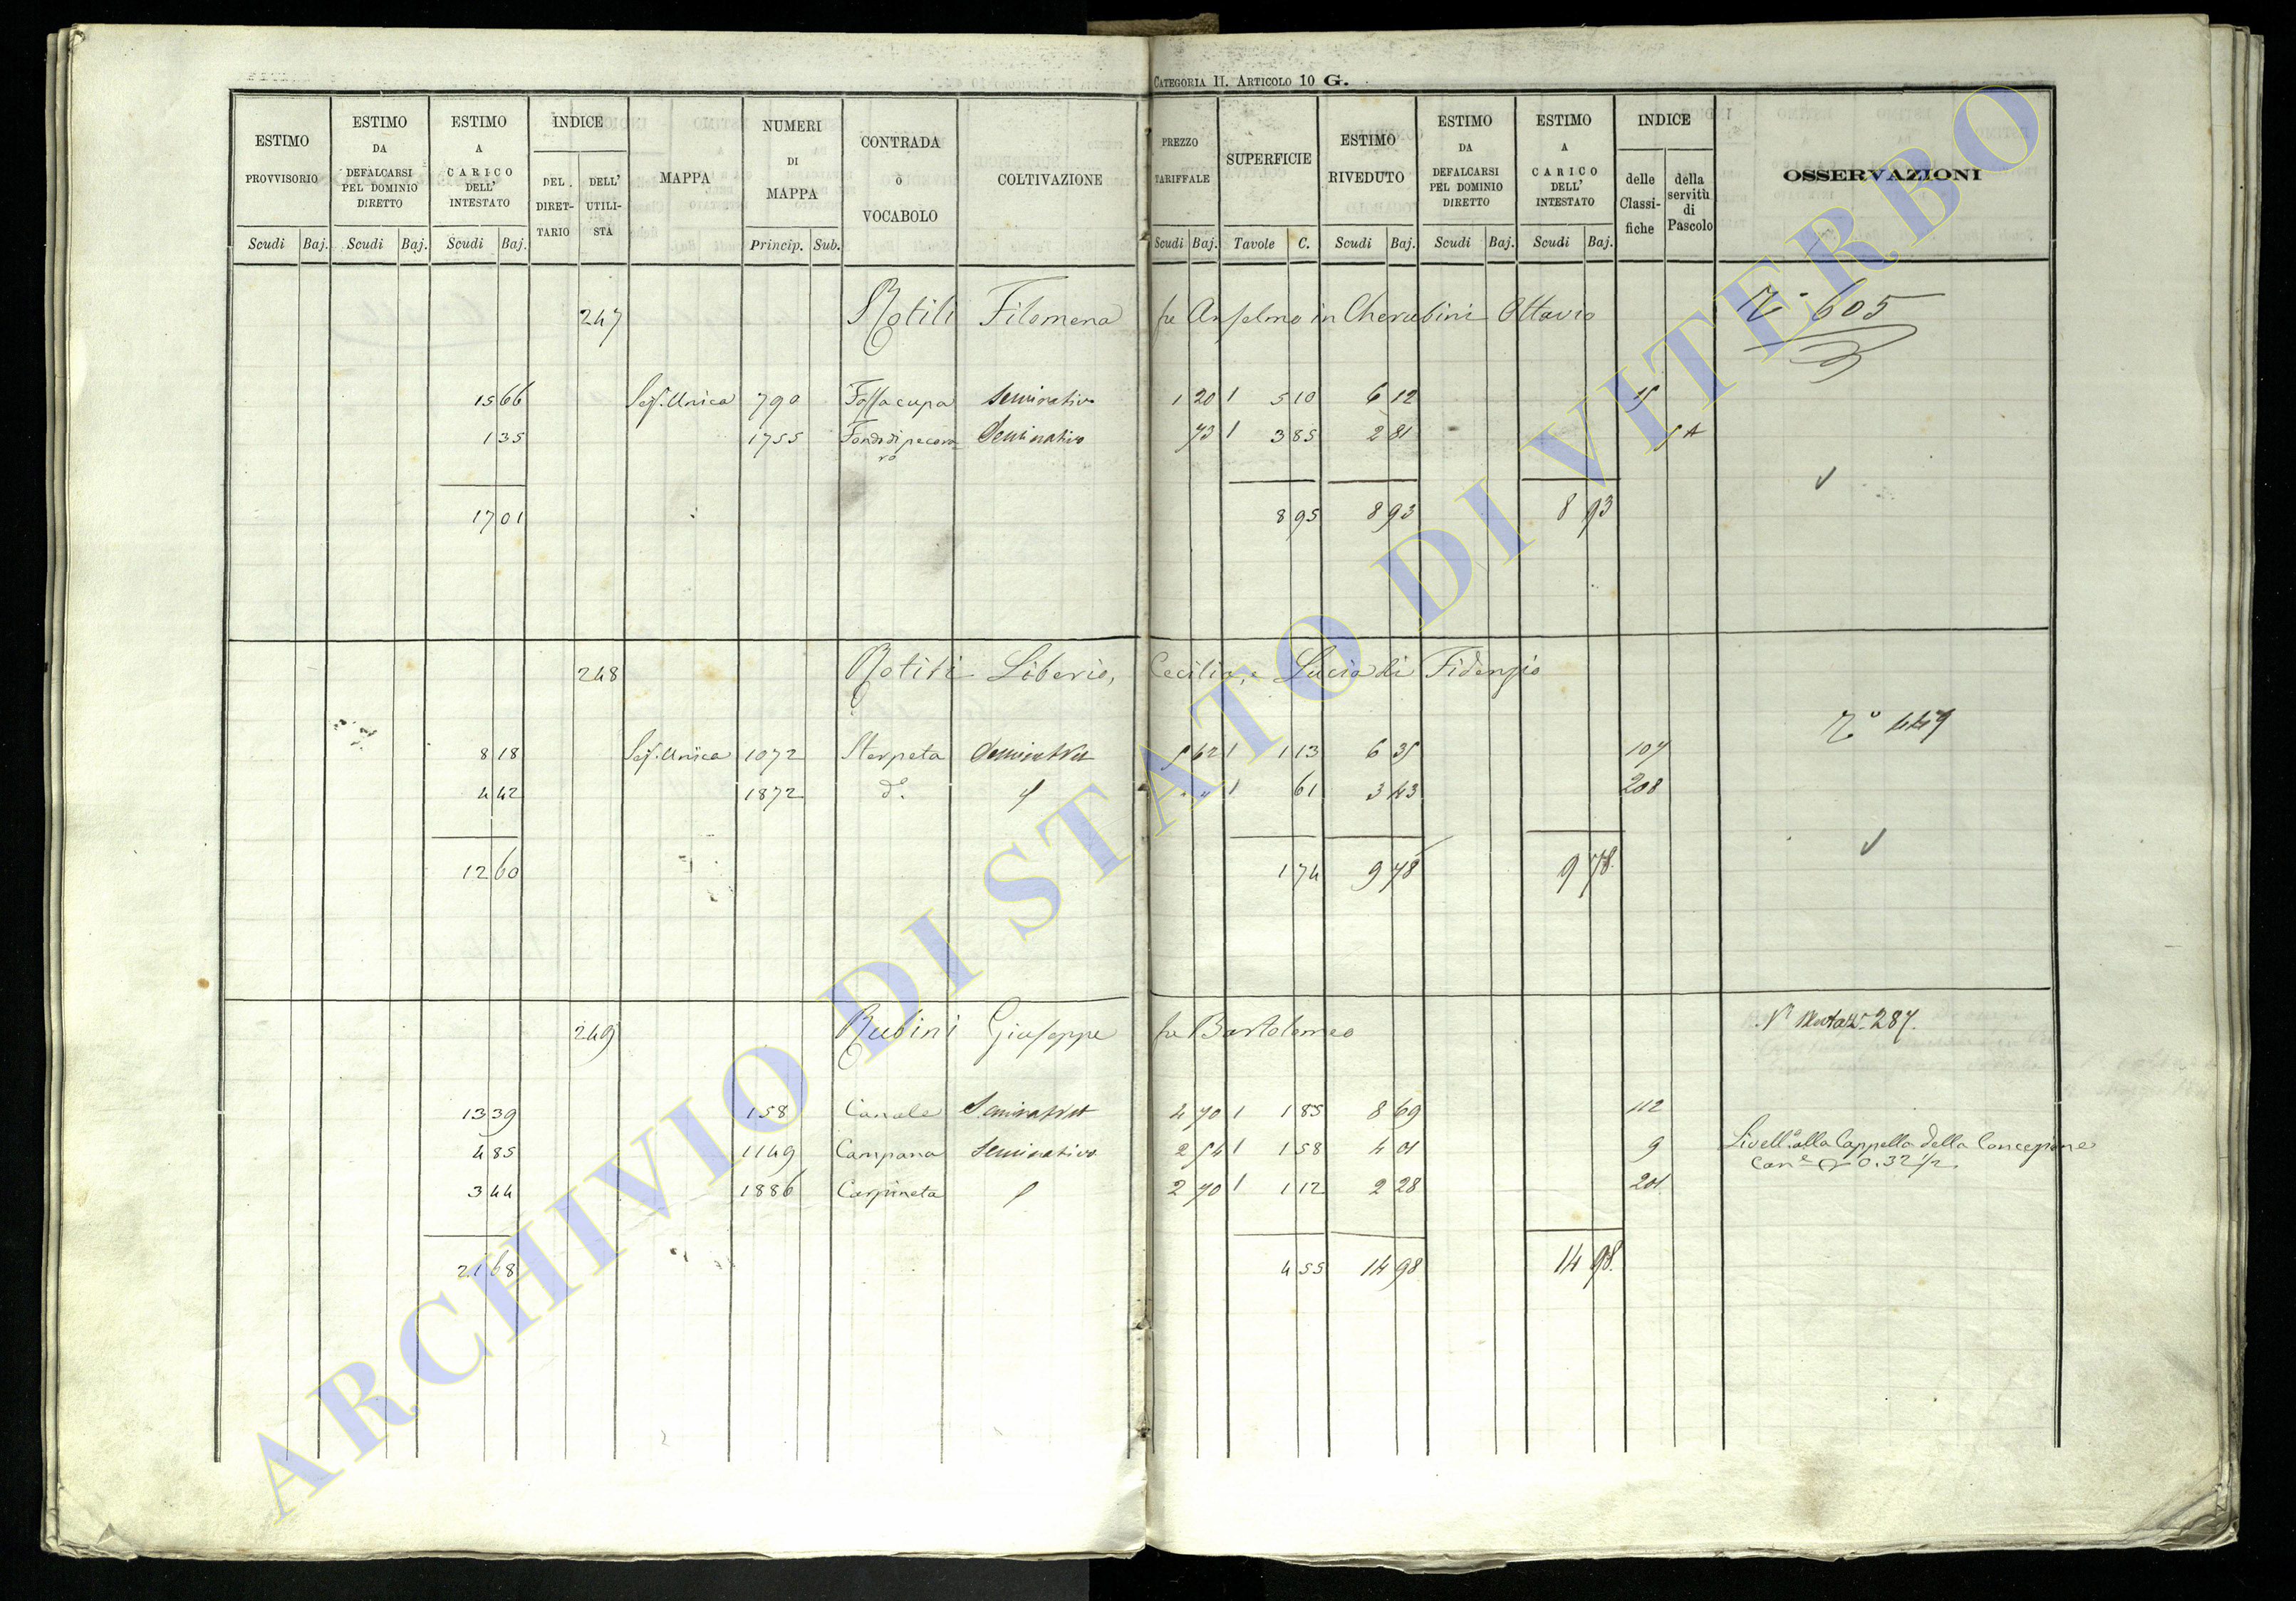 CATEGORIA II. ARTICOLO 10 G.
ESTIMO PROVVISORIO
ESTIMO DA DEFALCARSI PEL DOMINIO DIRETTO
ESTIMO A CARICO DELL' INTESTATO
INDICE
DEL DIRET-TARIO
DELL' UTILI-STA
MAPPA
NUMERI DI MAPPA
CONTRADA ò VOCABOLO
COLTIVAZIONE
PREZZO TARIFFALE
SUPERFICIE
ESTIMO RIVEDUTO
ESTIMO DA DEFALCARSI PEL DOMINIO DIRETTO
ESTIMO A CARICO DELL' INTESTATO
INDICE
delle Classi-fiche
della servitù di Pascolo
OSSERVAZIONI
Scudi Baj. Scudi Baj. Scudi Baj. Princip. Sub. Scudi Baj. Tavole C. Scudi Baj. Scudi Baj. Scudi Baj.
247 Rotili Filomena fu Anselmo in Cherubini Ottavio 605
15 66 Sez. Unica 790 Fossacupa Seminativo 1 20 1 5 10 6 12
1 35 1755 Fondo di pecora Seminativo 73 1 3 85 2 81
ro
17 01 8 95 8 93 8 93
248 Rotili Liberio, Cecilia, e Lucia di Fidenzio
449
8 18 Sez. Unica 1072 Sterpeta 5 62 1 1 13 6 35 107
4 42 1872 d.o " " 1 61 3 43 208
12 60 1 74 9 78 9 78.
249 Rubini Giuseppe fu Bartolomeo 287.
13 39 158 Canale 4 70 1 1 85 8 69 112
4 85 1149 Campana Seminativo 2 54 1 1 58 4 01 9 Livell.o alla Cappella della Concezione
Can.e 0.32 1/2
3 44 1886 Carpineta 2 70 1 1 12 2 28 201
21 68 4 55 14 98 14 98.
ARCHIVIO DI STATO DI VITERBO